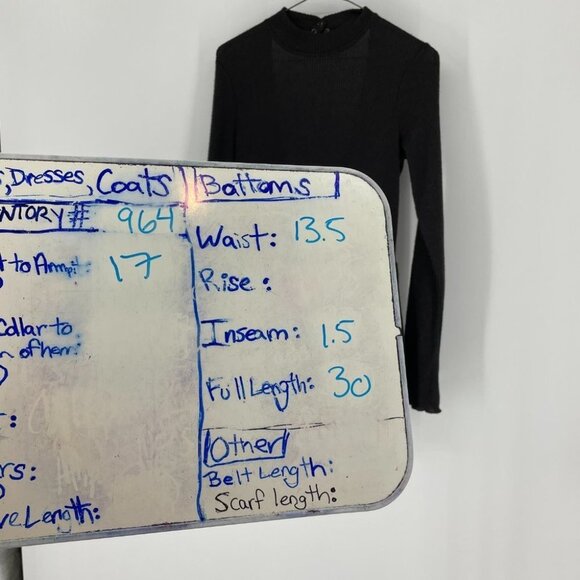 s, Dresses, Coats
NTORY # 964
t to Armpit: 17
Collar to
of hem:
:
rs:
ve Length:
Bottoms
Waist: 13.5
Rise:
Inseam: 1.5
Full Length: 30
Other
Belt Length:
Scarf length: